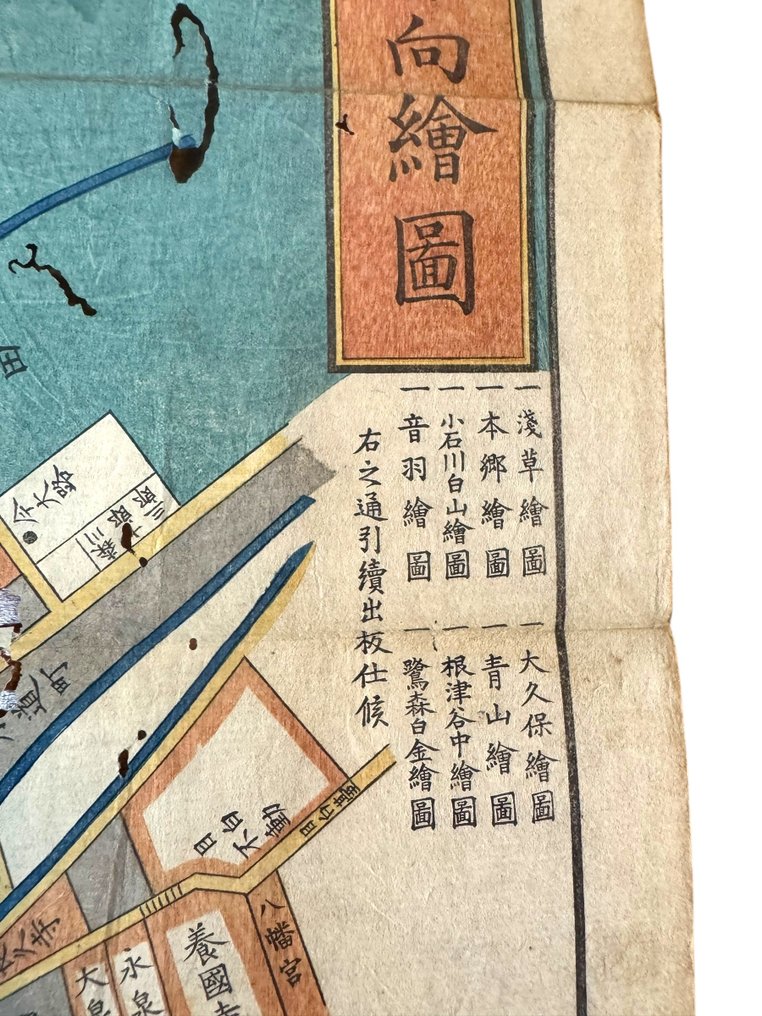 向繪圖
一淺草繪圖
一本郷繪圖
一小石川白山繪圖
一音羽繪圖
一大久保繪圖
一青山繪圖
一根津谷中繪圖
一鷺森白金繪圖
右之通引續出板仕候
田
今大路
三郎
森川
町
目白不動
目白
八幡宮
養國寺
永泉
大泉
寺